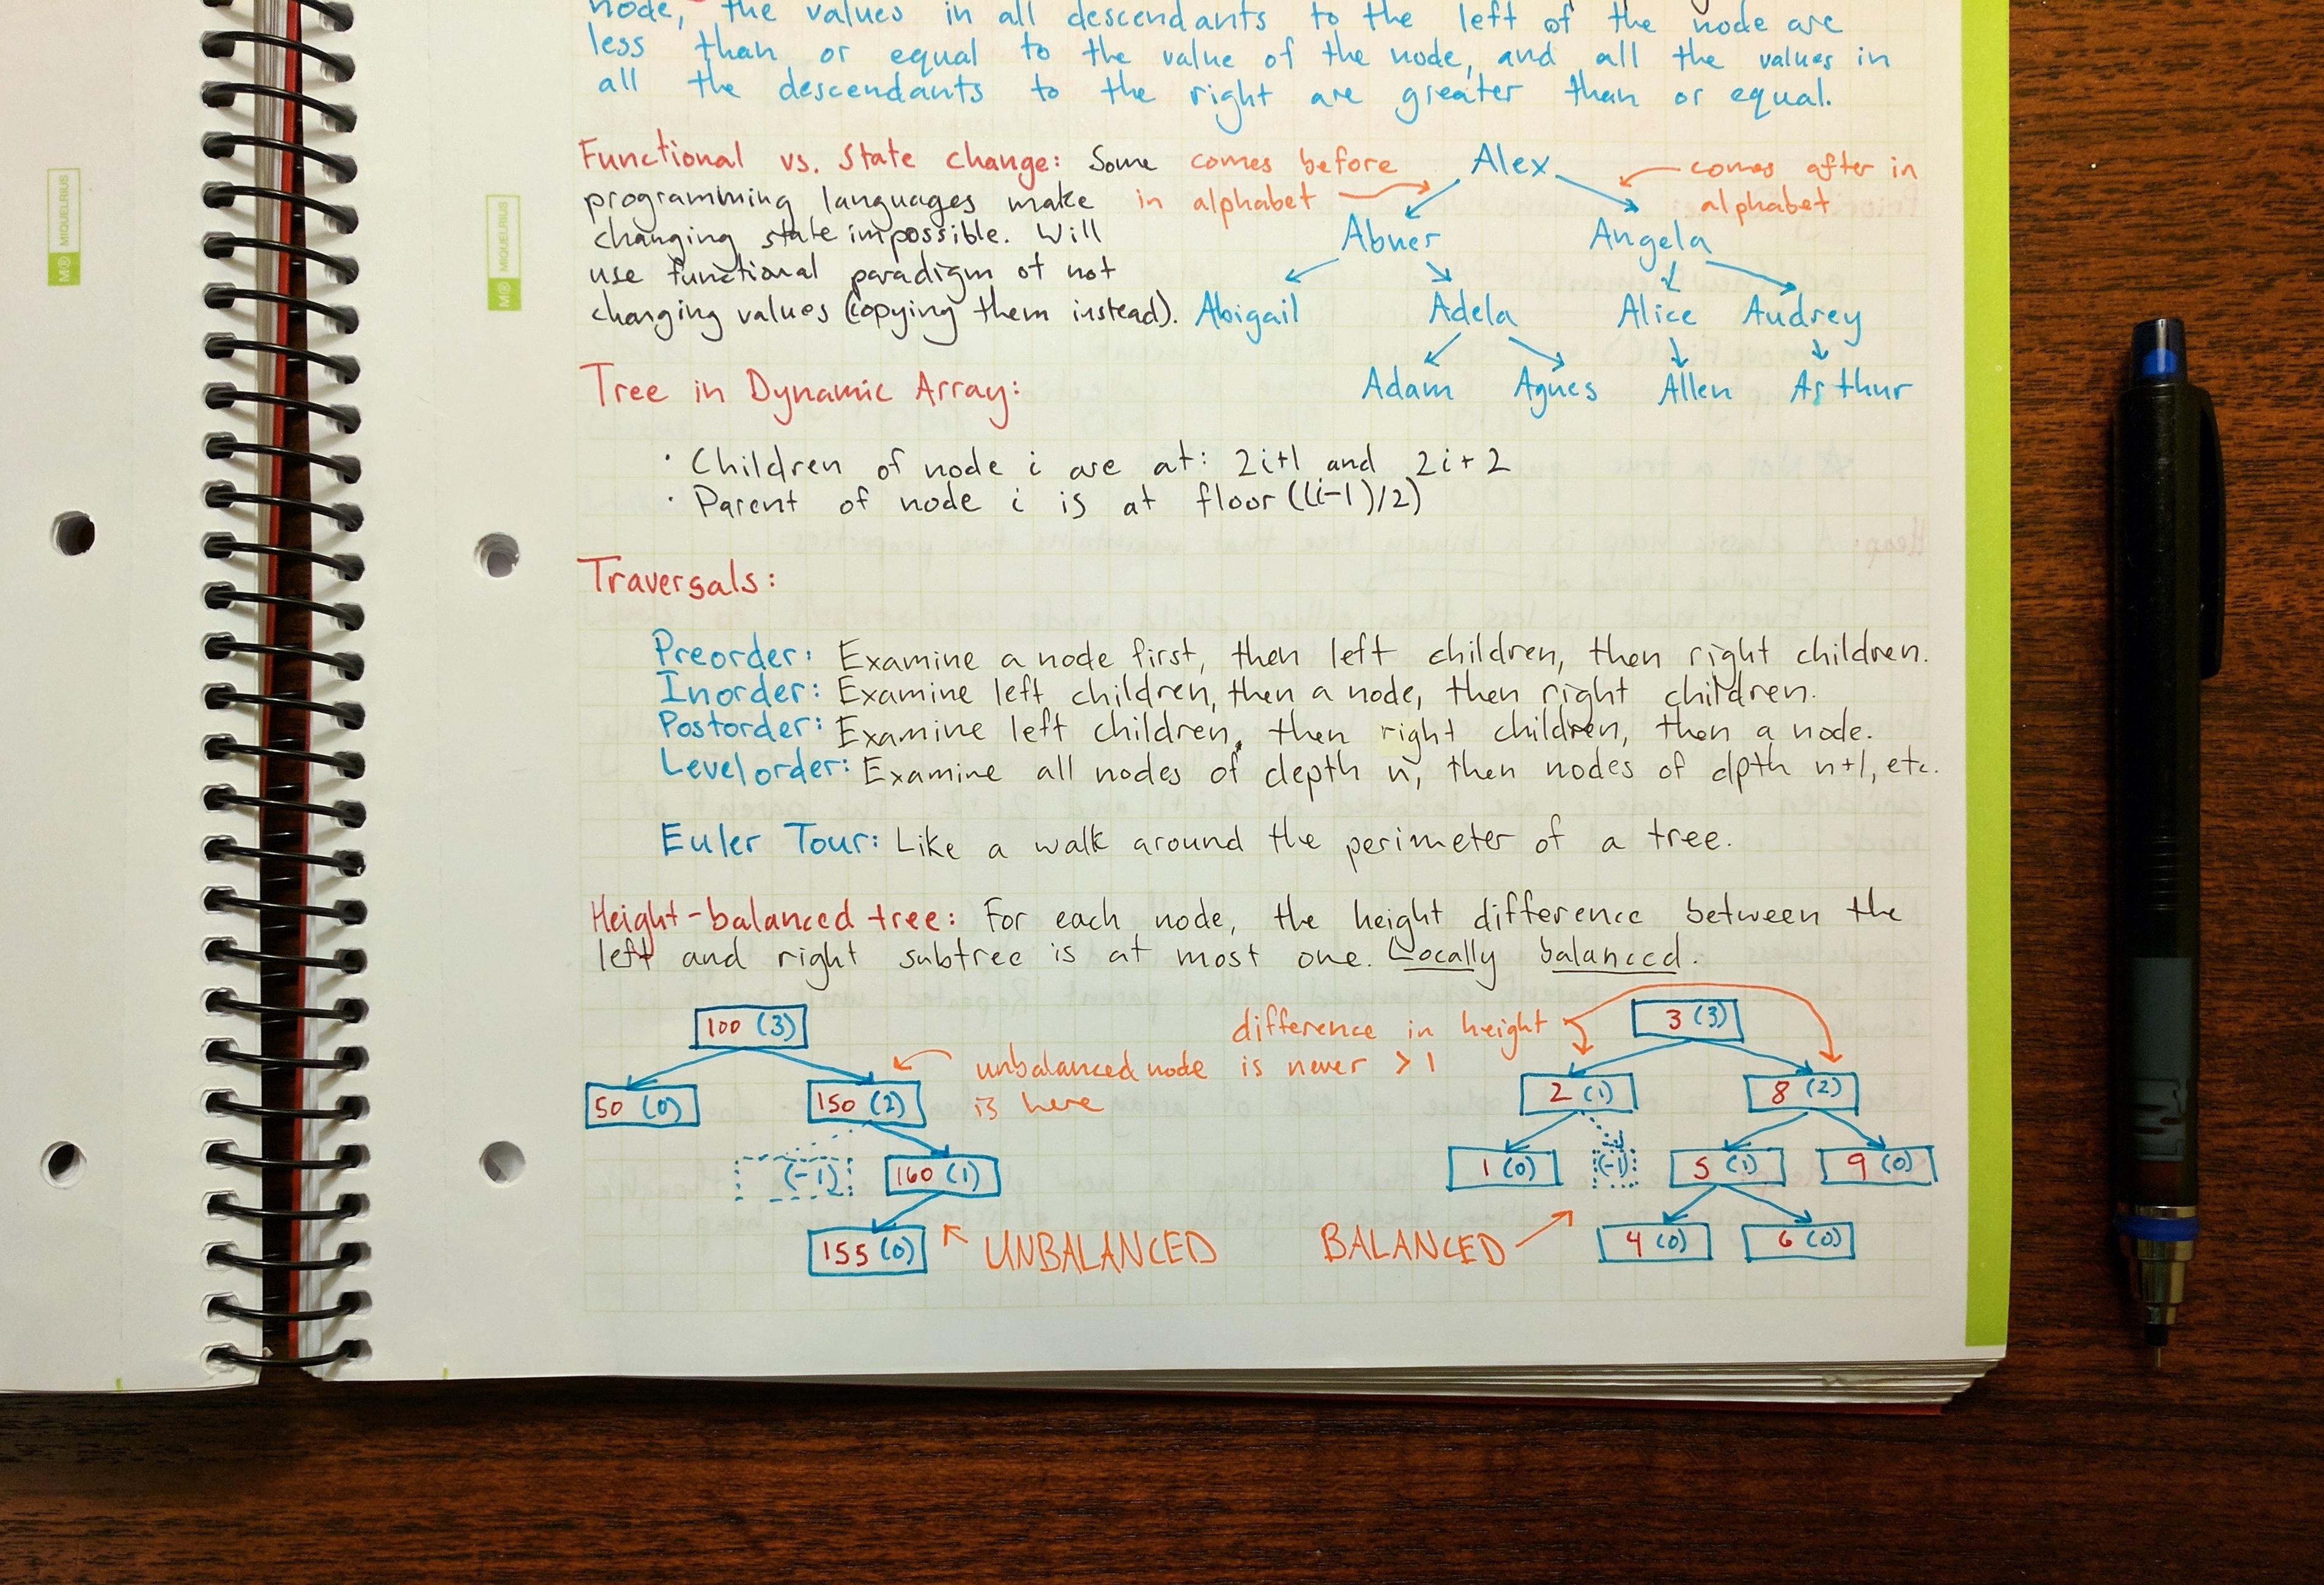 node, the values in all descendants to the left of the node are
less than or equal to the value of the node, and all the values in
all the descendants to the right are greater than or equal.
Functional vs. State change: Some
programming languages make
changing state impossible. Will
use functional paradigm of not
changing values (copying them instead).
comes before
in alphabet
Alex
comes after in
alphabet
Abner Angela
Abigail Adela Alice Audrey
Adam Agnes Allen Arthur
Tree in Dynamic Array:
· Children of node i are at: 2i+1 and 2i+2
· Parent of node i is at floor((i-1)/2)
Traversals:
Preorder: Examine a node first, then left children, then right children.
Inorder: Examine left children, then a node, then right children.
Postorder: Examine left children, then right children, then a node.
Levelorder: Examine all nodes of depth n, then nodes of dpth n+1, etc.
Euler Tour: Like a walk around the perimeter of a tree.
Height-balanced tree: For each node, the height difference between the
left and right subtree is at most one. Locally balanced.
100 (3)
50 (0) 150 (2)
unbalanced node
is here
(-1) 160 (1)
155 (0)
UNBALANCED
difference in height
is never > 1
3 (3)
2 (1) 8 (2)
1 (0) (-1) 5 (1) 9 (0)
4 (0) 6 (0)
BALANCED
M® MIQUELRIUS
M® MIQUELRIUS